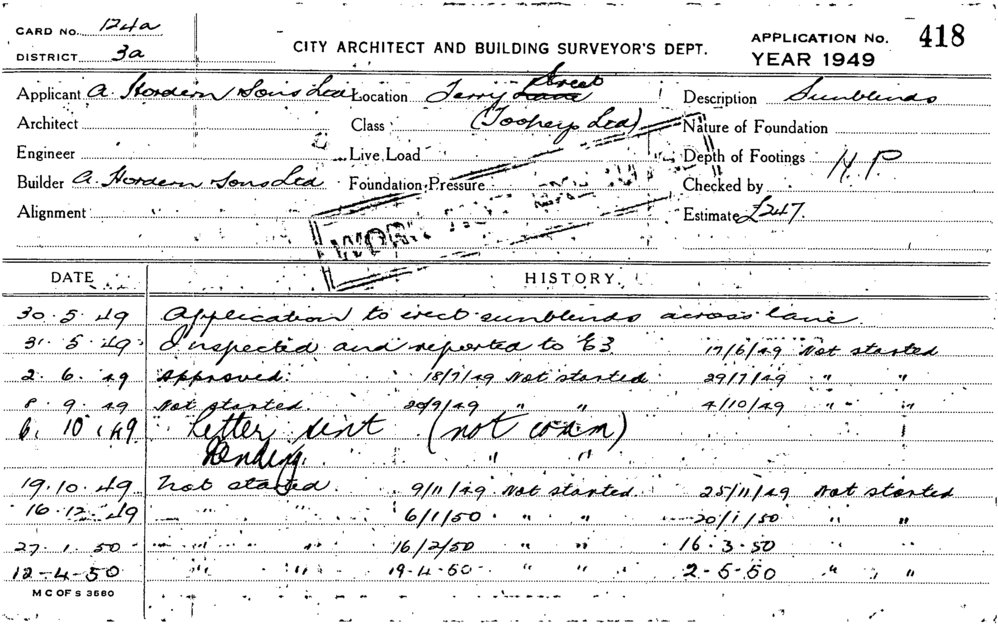 CARD NO. 124a
DISTRICT 3a
CITY ARCHITECT AND BUILDING SURVEYOR'S DEPT.
APPLICATION NO. 418
YEAR 1949
Applicant A. Hordern Sons Led Location Terry Lane Street Description Sunblinds
Architect Class (Toohey's Led) Nature of Foundation
Engineer Live Load Depth of Footings H.P.
Builder A. Hordern Sons Led Foundation Pressure Checked by
Alignment Estimate £247.
WORK NOT
DATE HISTORY.
30.5.49 Application to erect sunblinds across lane.
31.5.49 Inspected and reported to E3 17/6/49 Not started
2.6.49 Approved. 18/7/49 Not started 29/7/49 " "
8.9.49 Not started. 20/9/49 " " 4/10/49 " "
6.10.49 Letter sent (not comm)
Pending. " "
19.10.49 Not started. 9/11/49 Not started. 25/11/49 Not started
16.12.49 " " 6/1/50 " " 20/1/50 " "
27.1.50 " " 16/2/50 " " 16.3.50
12-4-50 " " 19-4-50 " " 2-5-50 " "
M C OF S 3680